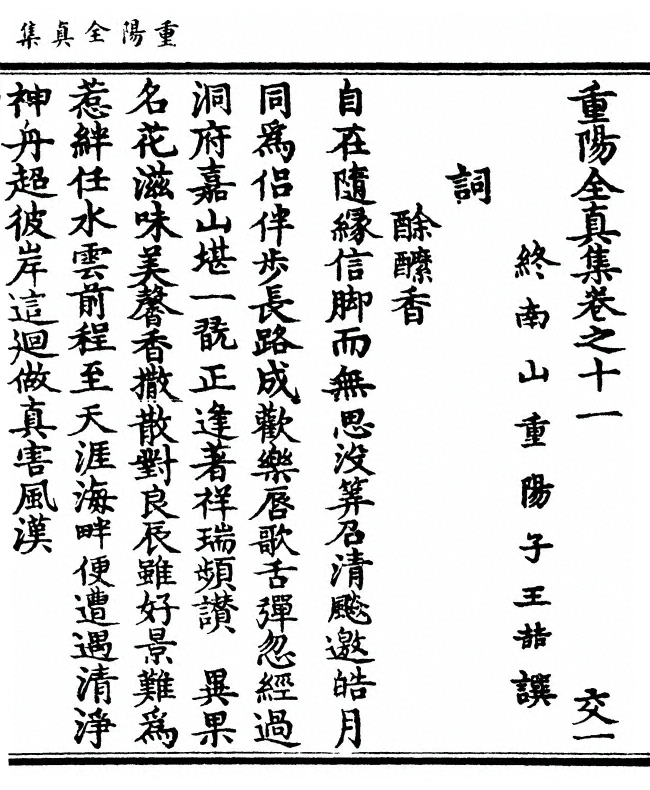 重陽全真集
重陽全真集卷之十一 交一
終南山重陽子王嚞撰
詞
酴醿香
自在隨緣信脚而無思沒筭召清飈邀皓月
同爲侣伴步長路成歡樂唇歌舌彈忽經過
洞府嘉山堪一翫正逢著祥瑞頻讃 異果
名花滋味美馨香撒散對良辰雖好景難爲
惹絆任水雲前程至天涯海畔便遭遇清淨
神舟超彼岸這迴做真害風漢